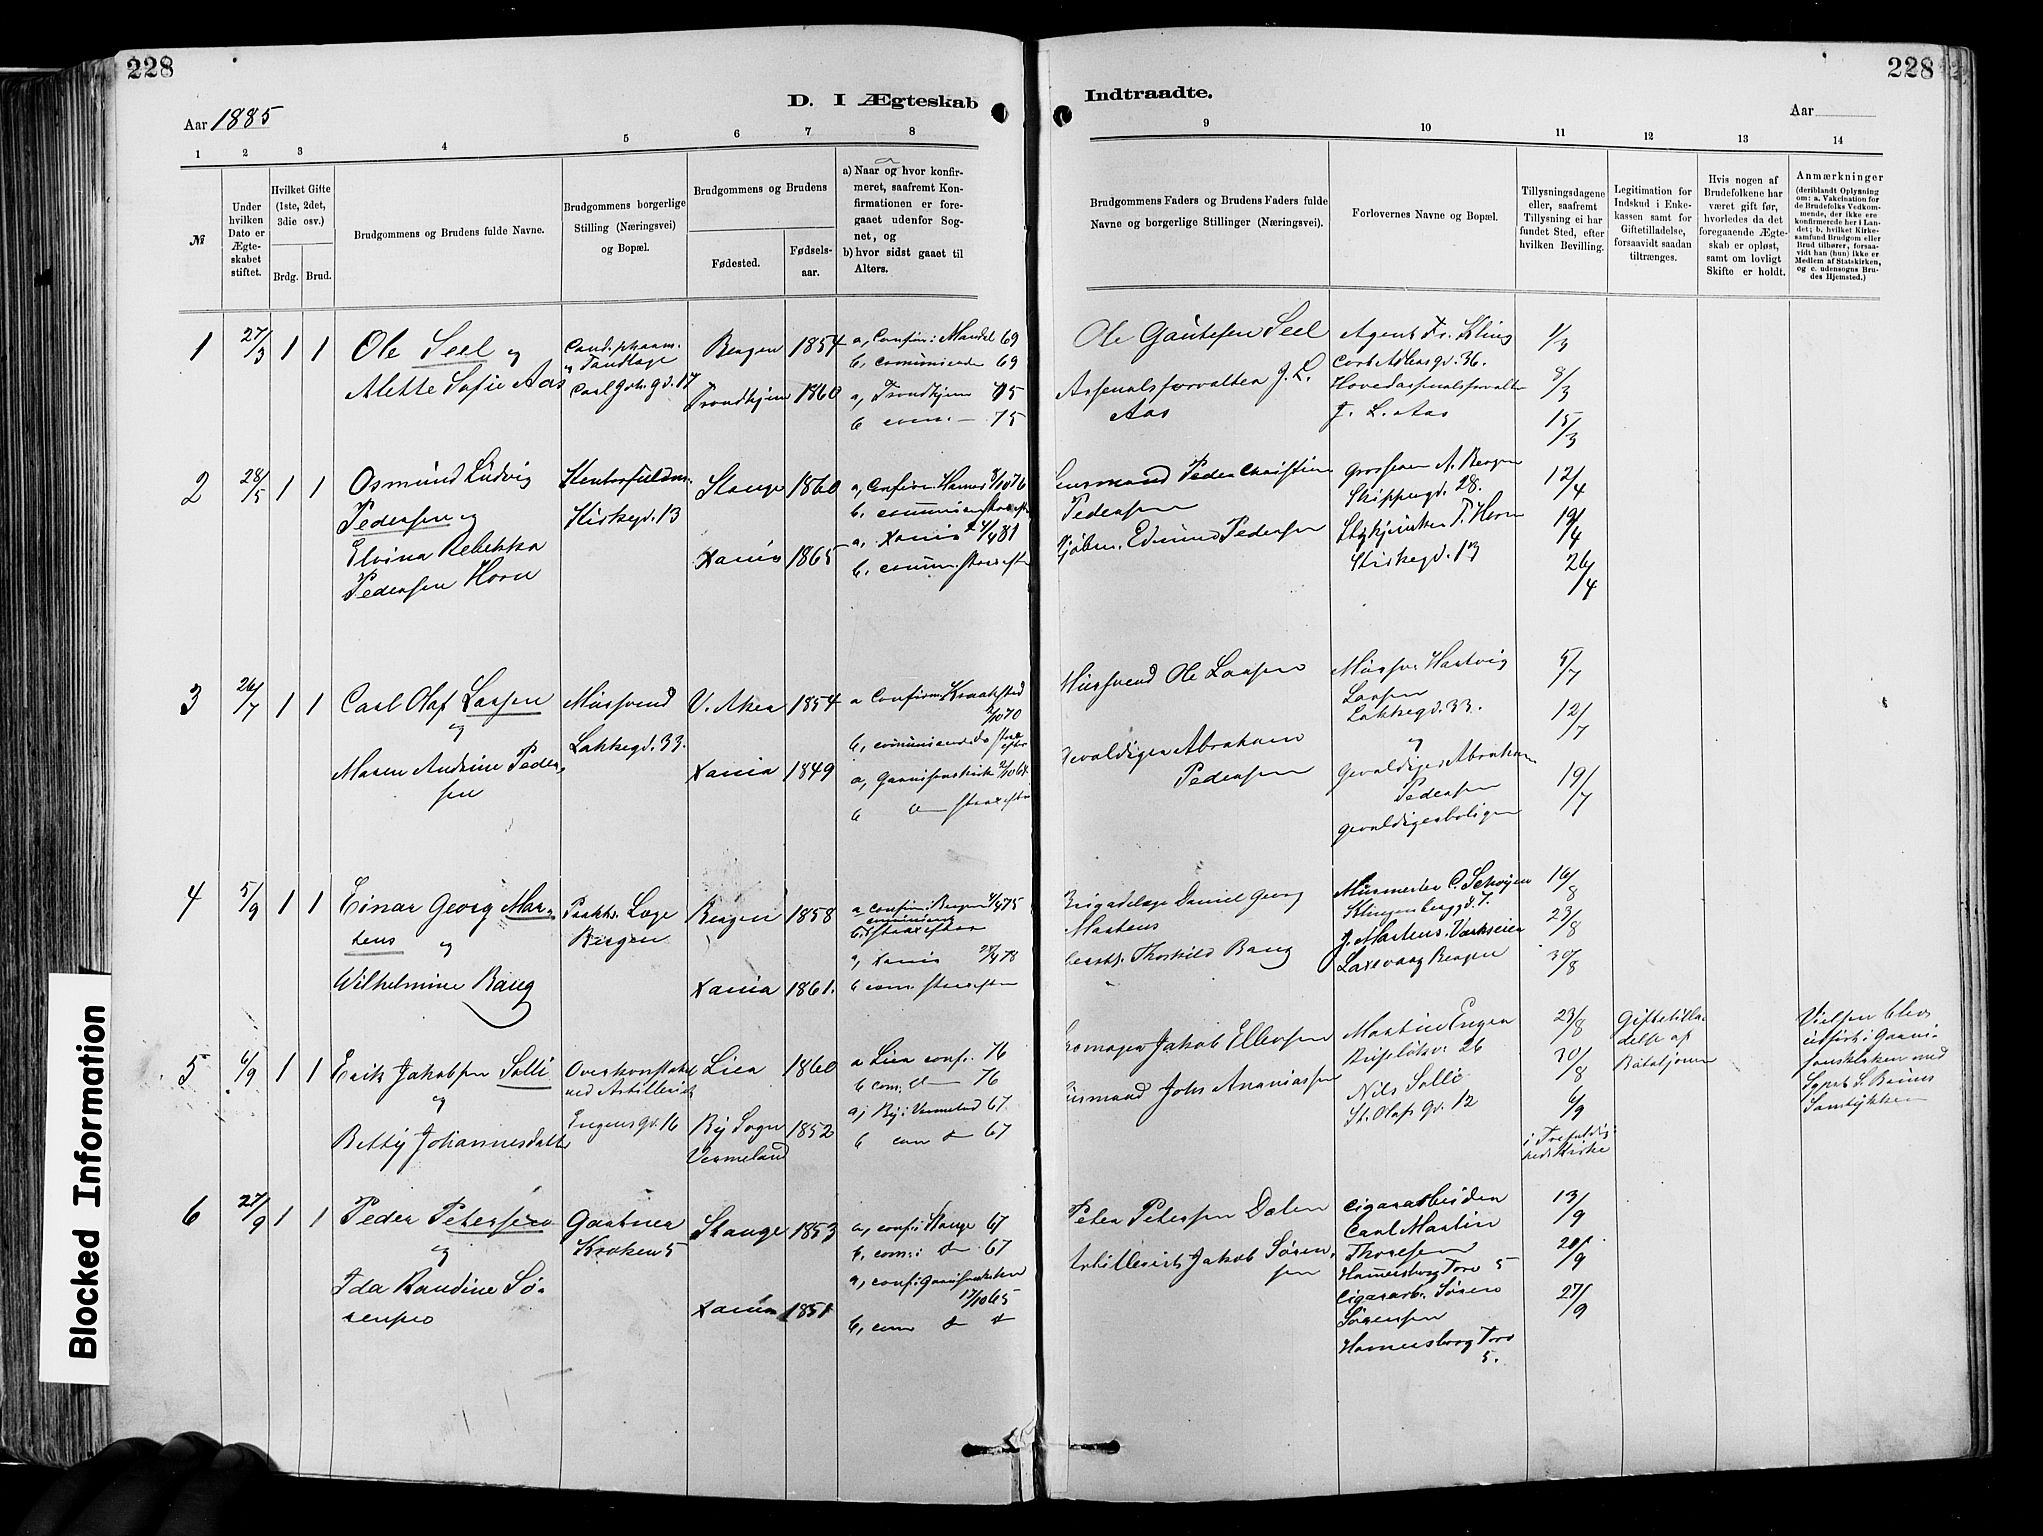 228
D. I Ægteskab
Aar 1885
1 2 3 4 5 6 7 8
№
Under hvilken Dato er Ægteskabet stiftet.
Hvilket Gifte (1ste, 2det, 3die osv.)
Brdg. Brud.
Brudgommens og Brudens fulde Navne.
Brudgommens borgerlige Stilling (Næringsvei) og Bopæl.
Brudgommens og Brudens
Fødested.
Fødselsaar.
a) Naar og hvor konfirmeret, saafremt Konfirmationen er foregaaet udenfor Sognet, og
b) hvor sidst gaaet til Alters.
1 27/3 1 1
Ole Seel og
Alette Sofie Aas
Cand. pharm.
og Tandlæge
Carl Joh. gd. 17
Bergen 1854
Trondhjem 1860
a, Confir: Mandal 69
b, communicerede 69
a, Trondhjem 75
b com. — 75
2 28/5 1 1
Osmund Ludvig
Pedersen og
Elvina Rebekka
Pedersen Horn
Kontorfuldm.
Kirkegd. 13
Stange 1860
Xania 1865
a, Confirm. Hamar 8/10 76
b. commun. strax efter
a, Xania 24/4 81
b, comun. strax efter
3 26/7 1 1
Carl Olaf Larsen
og
Maren Andrine Peder-
sen
Mursvend
Lakkegd. 33.
V. Aker 1854
Xania 1849
a Confirm. Kraakstad
2/10 70
b, comunicerede strax
efter
a, Garnisonskirke 2/10 64
b do strax efter
4 5/9 1 1
Einar Georg Mar-
tens og
Wilhelmine Bang
Prakt. Læge
Bergen
Bergen 1858
Xania 1861.
a confir: Bergen 4/4 75
b strax efter
a, Xania 28/4 78
b com. strax efter
5 6/9 1 1
Erik Jakobsen Solli
og
Betty Johannesdatter
Overkonstabel
ved Artilleriet
Engensgd. 16
Lier 1860
By Sogn
Vermeland 1852
a Lier conf. 76
b com: do — 76
a, By i Vermeland 67
b com do 67
6 27/9 1 1
Peder Petersen
og
Ida Randine Sø-
rensen
Gartner
Kroken 5
Stange 1853
Xania 1851
a, conf: Stange 67
b, com: do 67
a, conf: Garnisonskirken
17/10 65
b, com do do
Blocked Information
228
Indtraadte.
Aar
9 10 11 12 13 14
Brudgommens Faders og Brudens Faders fulde Navne og borgerlige Stillinger (Næringsvei).
Forlovernes Navne og Bopæl.
Tillysningsdagene eller, saafremt Tillysning ei har fundet Sted, efter hvilken Bevilling.
Legitimation for Indskud i Enkekassen samt for Giftetilladelse, forsaavidt saadan tiltrænges.
Hvis nogen af Brudefolkene har været gift før, hvorledes da det foregaaende Ægteskab er opløst, samt om lovligt Skifte er holdt.
Anmærkninger
(deriblandt Oplysning om: a. Vakcination for de Brudefolks Vedkommende, der ikke ere konfirmerede her i Landet; b. hvilket Kirkesamfund Brudgom eller Brud tilhører, forsaavidt han (hun) ikke er Medlem af Statskirken, og c. udensogns Brudes Hjemsted.)
Ole Gautesen Seel
Arsenalsforvalter J. L.
Aas
Agent Fr. Kling
Cort Adlersgd. 36.
Hovedarsenalsforvalter
J. L. Aas
1/3
8/3
15/3
Lensmand Peder Christian
Pedersen
Kjøbm. Edvind Pedersen
Grosserer A. Bergen
Skippergd. 28.
Horn
Kirkegd. 13
12/4
19/4
26/4
Mursvend Ole Larsen
Gevaldiger Abraham
Pedersen
Mursv. Hartvig
Larsen
Lakkegd. 33.
og
Gevaldiger Abraham
Pedersen
Gevaldigerboligen
5/7
12/7
19/7
Brigadelæge Daniel Georg
Martens
Thorkild Bang
Murmester C. Schøyen
Klingenberggd. 7.
J. Martens. Værkseier
Laxevaag Bergen
16/8
23/8
30/8
Jakob Ellevsen
Husmand Johs Ananiassen
Martin Engen
26
Nils Solli
St. Olafs Gd. 12
23/8
30/8
6/9
i Trefoldig-
hedskirke
Giftetilla-
delse af
Bataljonen
Vielsen blev
udført i Garni-
sonskirken med
Samtykke
Peter Petersen Dalen
Artillerist Jakob Søren-
sen
Cigararbeider
Carl Martin
Thoresen
Hamersborg Torv 5
Cigararb. Søren
Sørensen
Hamersborg Torv
5.
13/9
20/9
27/9